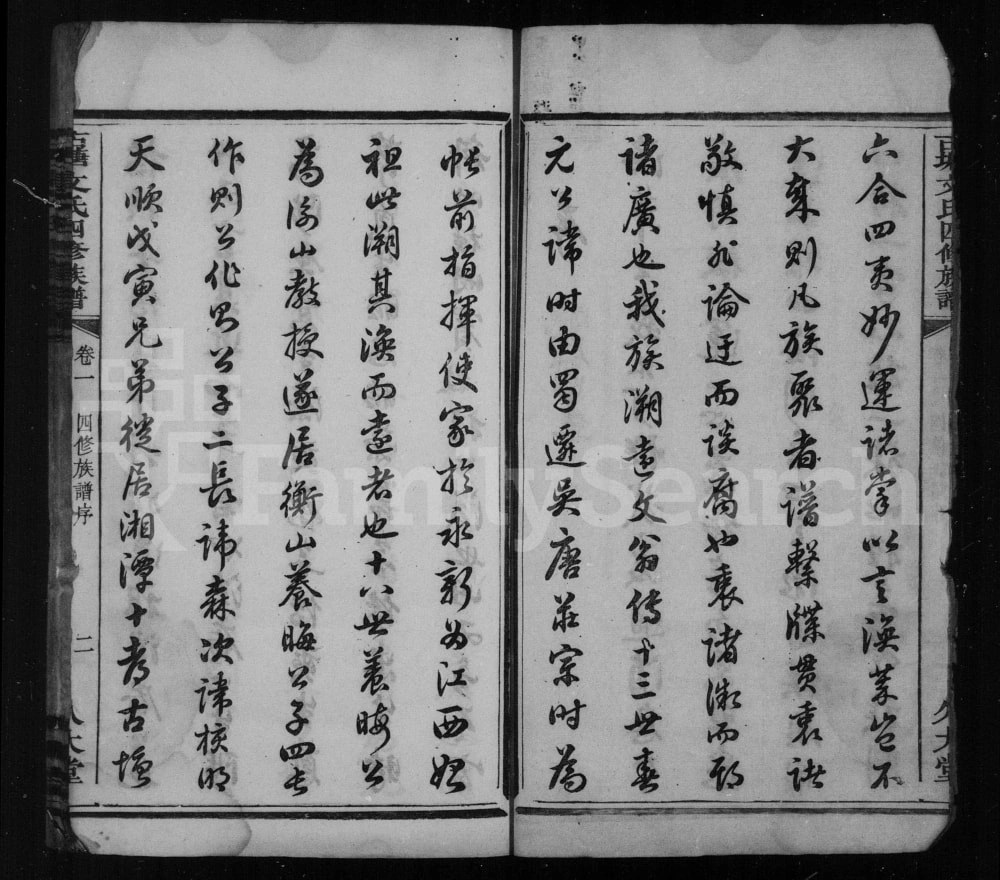 六合四夷妙運諸掌以言渙萃豈不
大哉則凡族聚者譜繫牒貫衷諸
敬慎非論迂而談腐也衷諸微而
諸廣也我族溯遠文翁傳十三世春
元公諱時由蜀遷吳唐莊宗時為
帳前指揮使家於永新為江西始
祖此溯其渙而遠者也十八世養晦公
為衡山教授遂居衡山養晦公子四長
作則公作則公子二長諱森次諱核明
天順戊寅兄弟從居湘潭十考古塘
文氏四修族譜
卷一
四修族譜序
二
大堂
FamilySearch